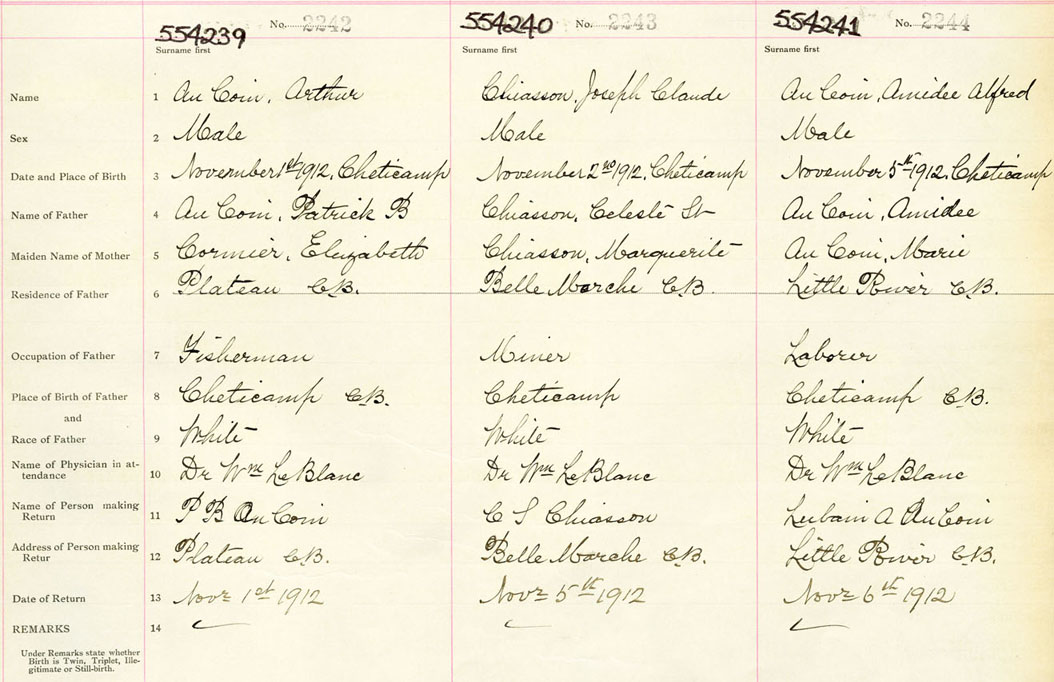 554239 No. 2242 554240 No. 2243 554241 No. 2244
Surname first Surname first Surname first
Name 1 Au Coin, Arthur Chiasson, Joseph Claude Au Coin, Amidee Alfred
Sex 2 Male Male Male
Date and Place of Birth 3 November 1st 1912, Cheticamp November 2nd 1912, Cheticamp November 5th 1912, Cheticamp
Name of Father 4 Au Coin, Patrick B Chiasson, Celeste St Au Coin, Amidee
Maiden Name of Mother 5 Cormier, Elizabeth Chiasson, Marguerite Au Coin, Marie
Residence of Father 6 Plateau C.B. Belle Marche C.B. Little River C.B.
Occupation of Father 7 Fisherman Miner Laborer
Place of Birth of Father 8 Cheticamp C.B. Cheticamp Cheticamp C.B.
and
Race of Father 9 White White White
Name of Physician in at-
tendance 10 Dr Wm LeBlanc Dr Wm LeBlanc Dr Wm LeBlanc
Name of Person making
Return 11 P B AuCoin C S Chiasson Lubain A AuCoin
Address of Person making
Retur 12 Plateau C.B. Belle Marche C.B. Little River C.B.
Date of Return 13 Novr 1st 1912 Novr 5th 1912 Novr 6th 1912
REMARKS 14
Under Remarks state whether
Birth is Twin, Triplet, Ille-
gitimate or Still-birth.